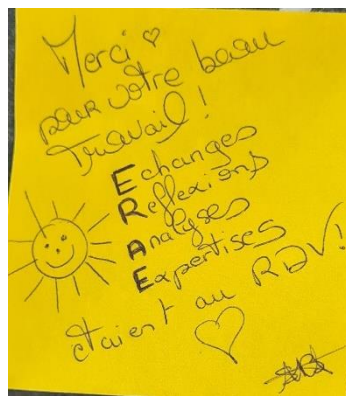 Merci
pour votre beau
Travail !
Echanges
Reflexions
Analyses
Expertises
étaient au RDV !